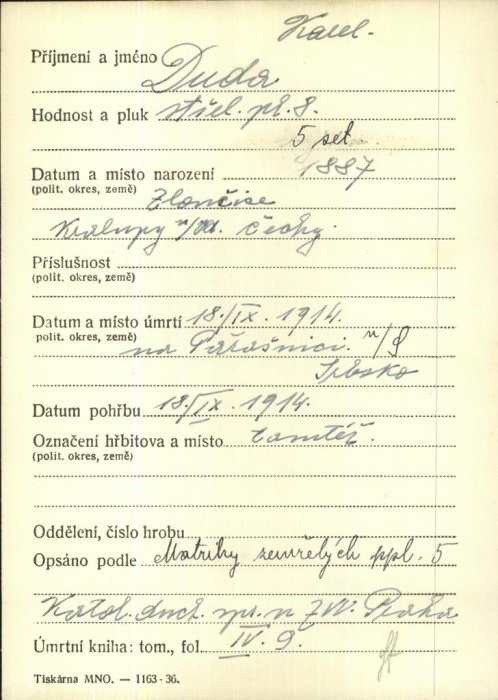 Karel.
Příjmení a jméno Duda
Hodnost a pluk střel. pl. 8.
5 set.
Datum a místo narození 1887
(polit. okres, země) Zlončice
Kralupy n/Vl. Čechy.
Příslušnost
(polit. okres, země)
Datum a místo úmrtí 18./IX. 1914.
polit. okres, země) na Parašnici. n/S
Srbsko
Datum pohřbu 18./IX. 1914.
Označení hřbitova a místo tamtéž.
(polit. okres, země)
Oddělení, číslo hrobu
Opsáno podle Matriky zemřelých ppl. 5
Katol. duch. spr. n ZVV. Praha
Úmrtní kniha: tom., fol. IV. 9.
Tiskárna MNO. — 1163-36.